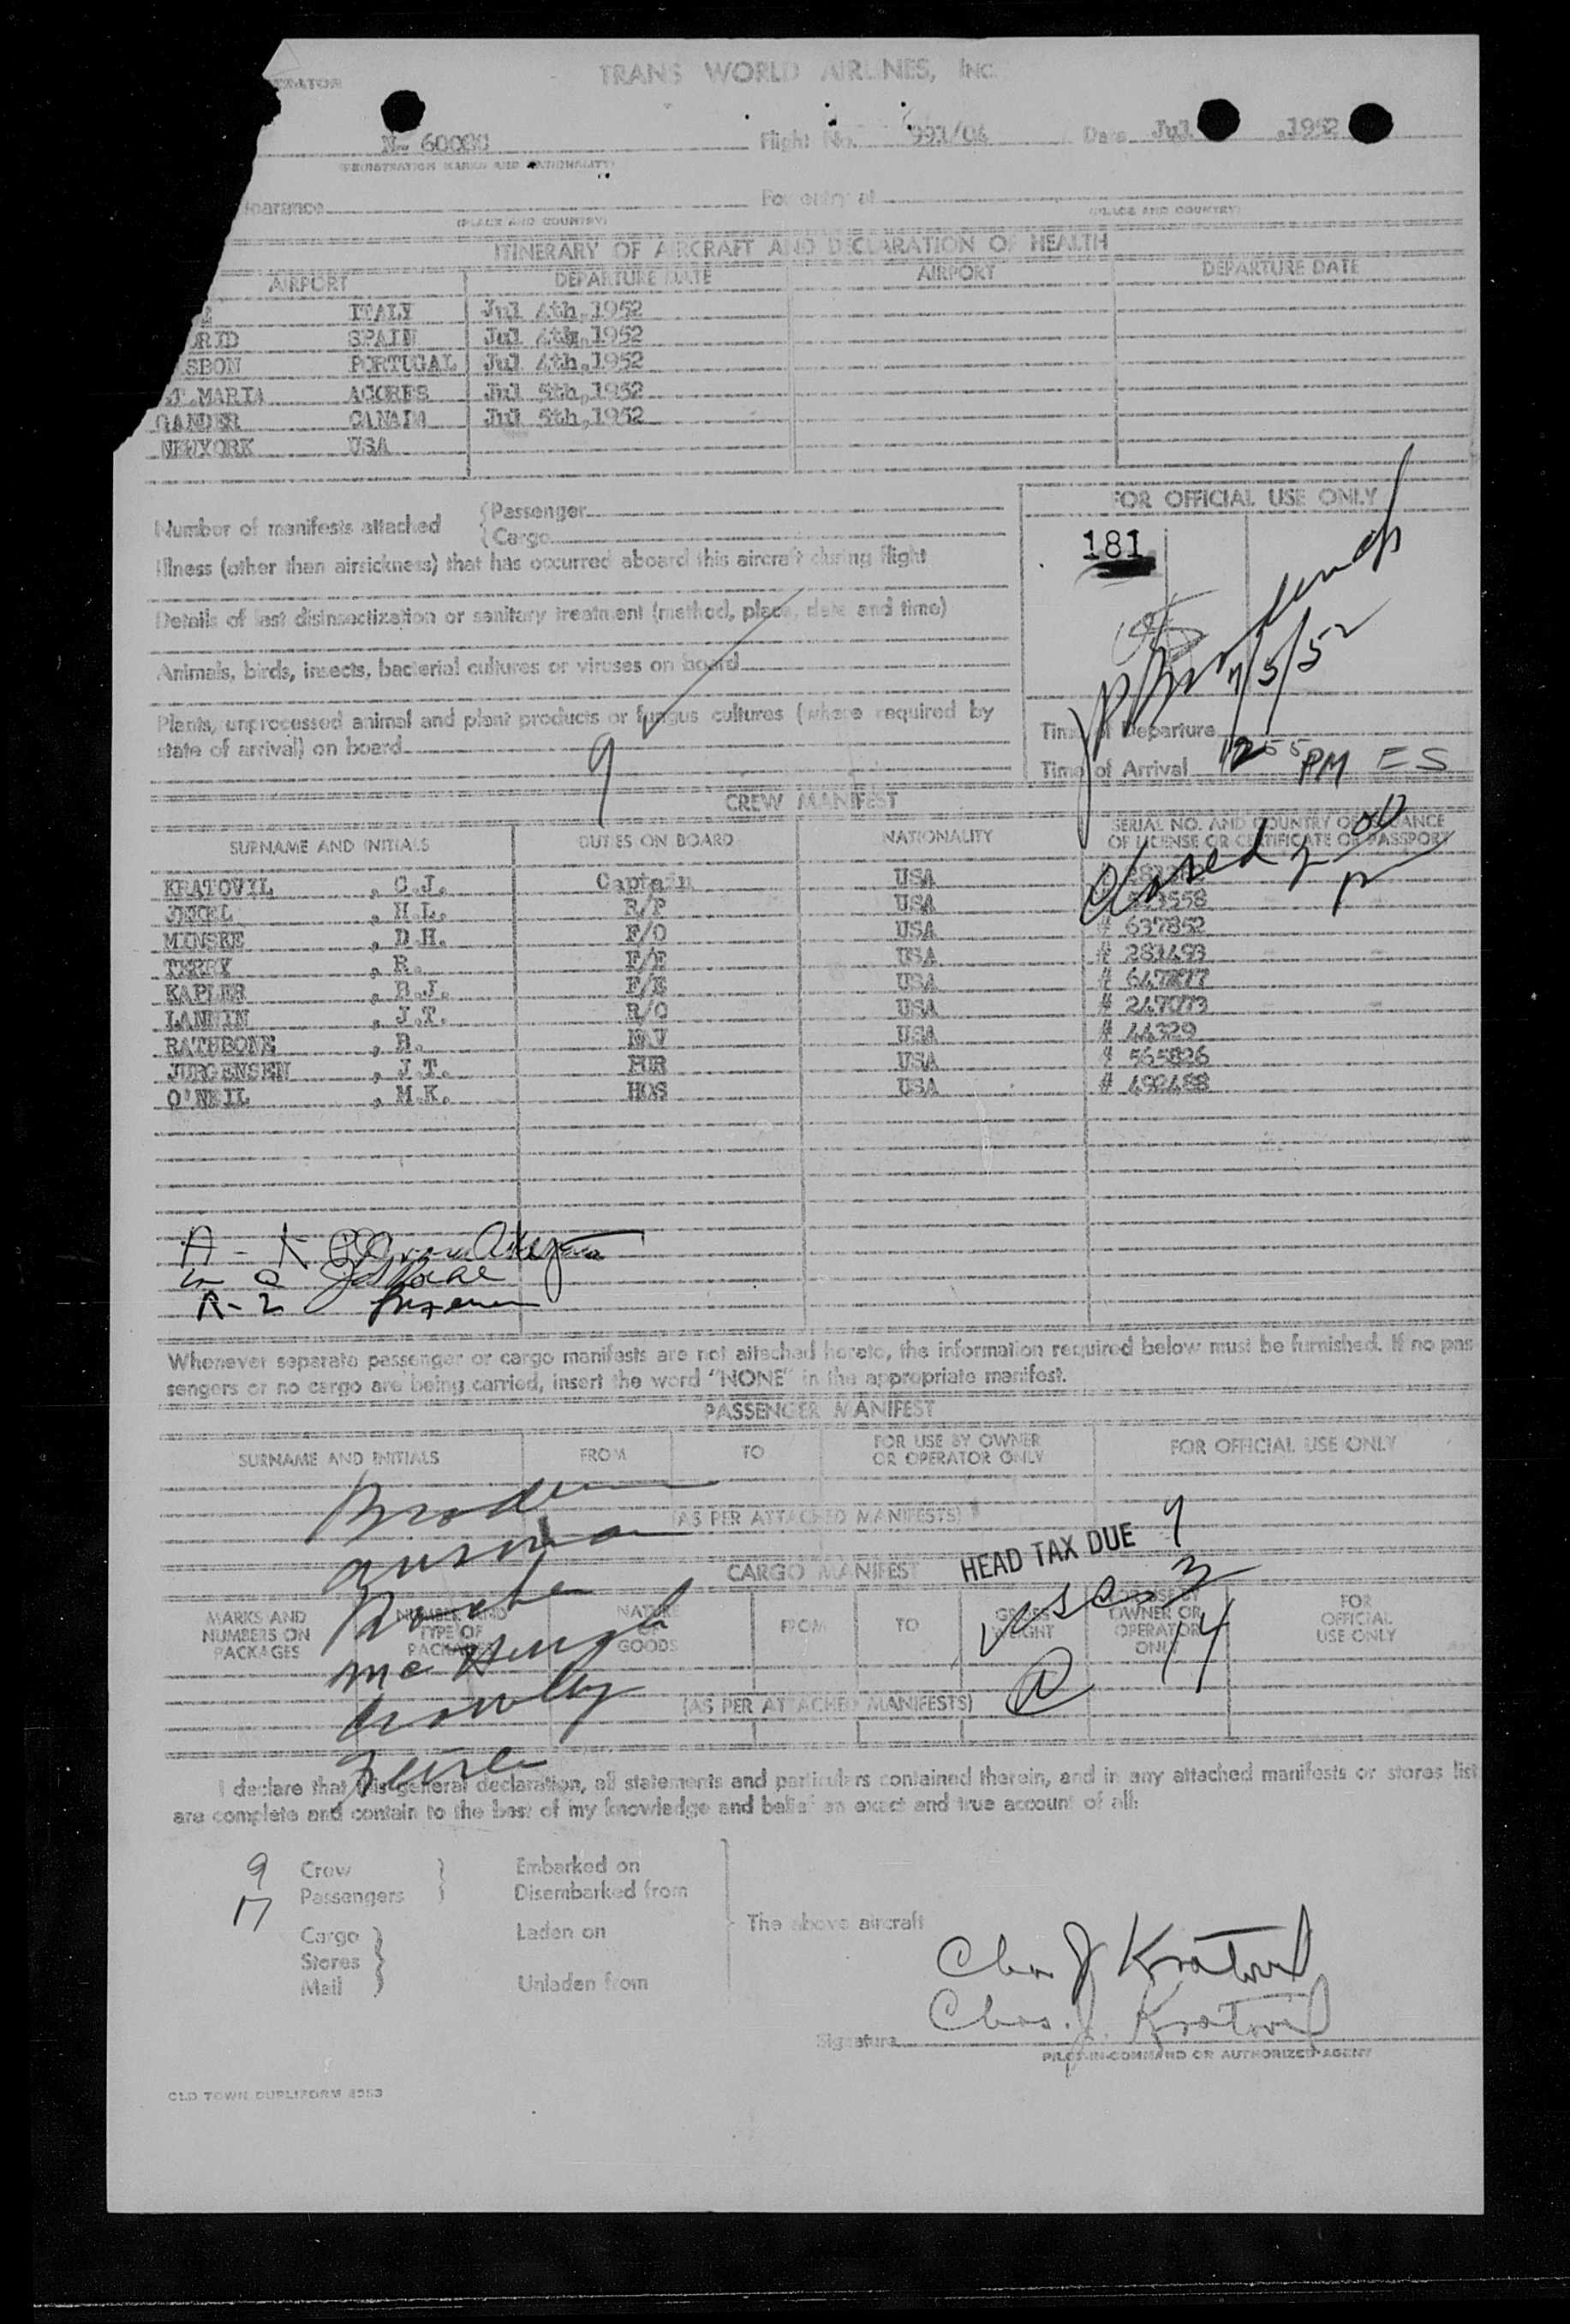 TRANS WORLD AIRLINES, INC.
Flight No. 991/04 Date Jul ,1952
(REGISTRATION MARKS AND NATIONALITY)
For entry at
(PLACE AND COUNTRY) (PLACE AND COUNTRY)
ITINERARY OF AIRCRAFT AND DECLARATION OF HEALTH
AIRPORT DEPARTURE DATE AIRPORT DEPARTURE DATE
ITALY Jul 4th,1952
SPAIN Jul 4th,1952
PORTUGAL Jul 4th,1952
MARIA ACORES Jul 5th,1952
GANDER CANADA Jul 5th,1952
NEWYORK USA
FOR OFFICIAL USE ONLY
Number of manifests attached { Passenger
{ Cargo
181
Illness (other than airsickness) that has occurred aboard this aircraft during flight
Details of last disinsectization or sanitary treatment (method, place, date and time)
Animals, birds, insects, bacterial cultures or viruses on board
7/5/52
Plants, unprocessed animal and plant products or fungus cultures (where required by
state of arrival) on board
9
Time of Departure
Time of Arrival 1255 PM ES
CREW MANIFEST
SURNAME AND INITIALS DUTIES ON BOARD NATIONALITY SERIAL NO. AND COUNTRY OF ISSUANCE
OF LICENSE OR CERTIFICATE OR PASSPORT
KRATOVIL , C.J. Captain USA
, H.L. R/P USA
MINSEE , D.H. F/O USA # 637852
TERRY , R. F/E USA # 281493
KAPLER , B.J. F/E USA
LANNIN , J.T. R/O USA # 247073
RATHBONE , B. NAV USA # 44329
JURGENSEN , J.T. PUR USA # 565826
O'NEIL , M.K. HOS USA # 492488
Whenever separate passenger or cargo manifests are not attached hereto, the information required below must be furnished. If no pas-
sengers or no cargo are being carried, insert the word "NONE" in the appropriate manifest.
PASSENGER MANIFEST
SURNAME AND INITIALS FROM TO FOR USE BY OWNER
OR OPERATOR ONLY FOR OFFICIAL USE ONLY
(AS PER ATTACHED MANIFESTS)
HEAD TAX DUE 9
CARGO MANIFEST
MARKS AND
NUMBERS ON
PACKAGES NUMBER AND
TYPE OF
PACKAGES NATURE
OF
GOODS FROM TO GROSS
WEIGHT FOR USE BY
OWNER OR
OPERATOR
ONLY FOR
OFFICIAL
USE ONLY
14
(AS PER ATTACHED MANIFESTS)
I declare that this general declaration, all statements and particulars contained therein, and in any attached manifests or stores list
are complete and contain to the best of my knowledge and belief an exact and true account of all:
9 Crew } Embarked on
17 Passengers } Disembarked from
Cargo } Laden on The above aircraft
Stores }
Mail } Unladen from
Chas J Kratovil
Chas. J. Kratovil
Signature
PILOT-IN-COMMAND OR AUTHORIZED AGENT
OLD TOWN DUPLIFORM